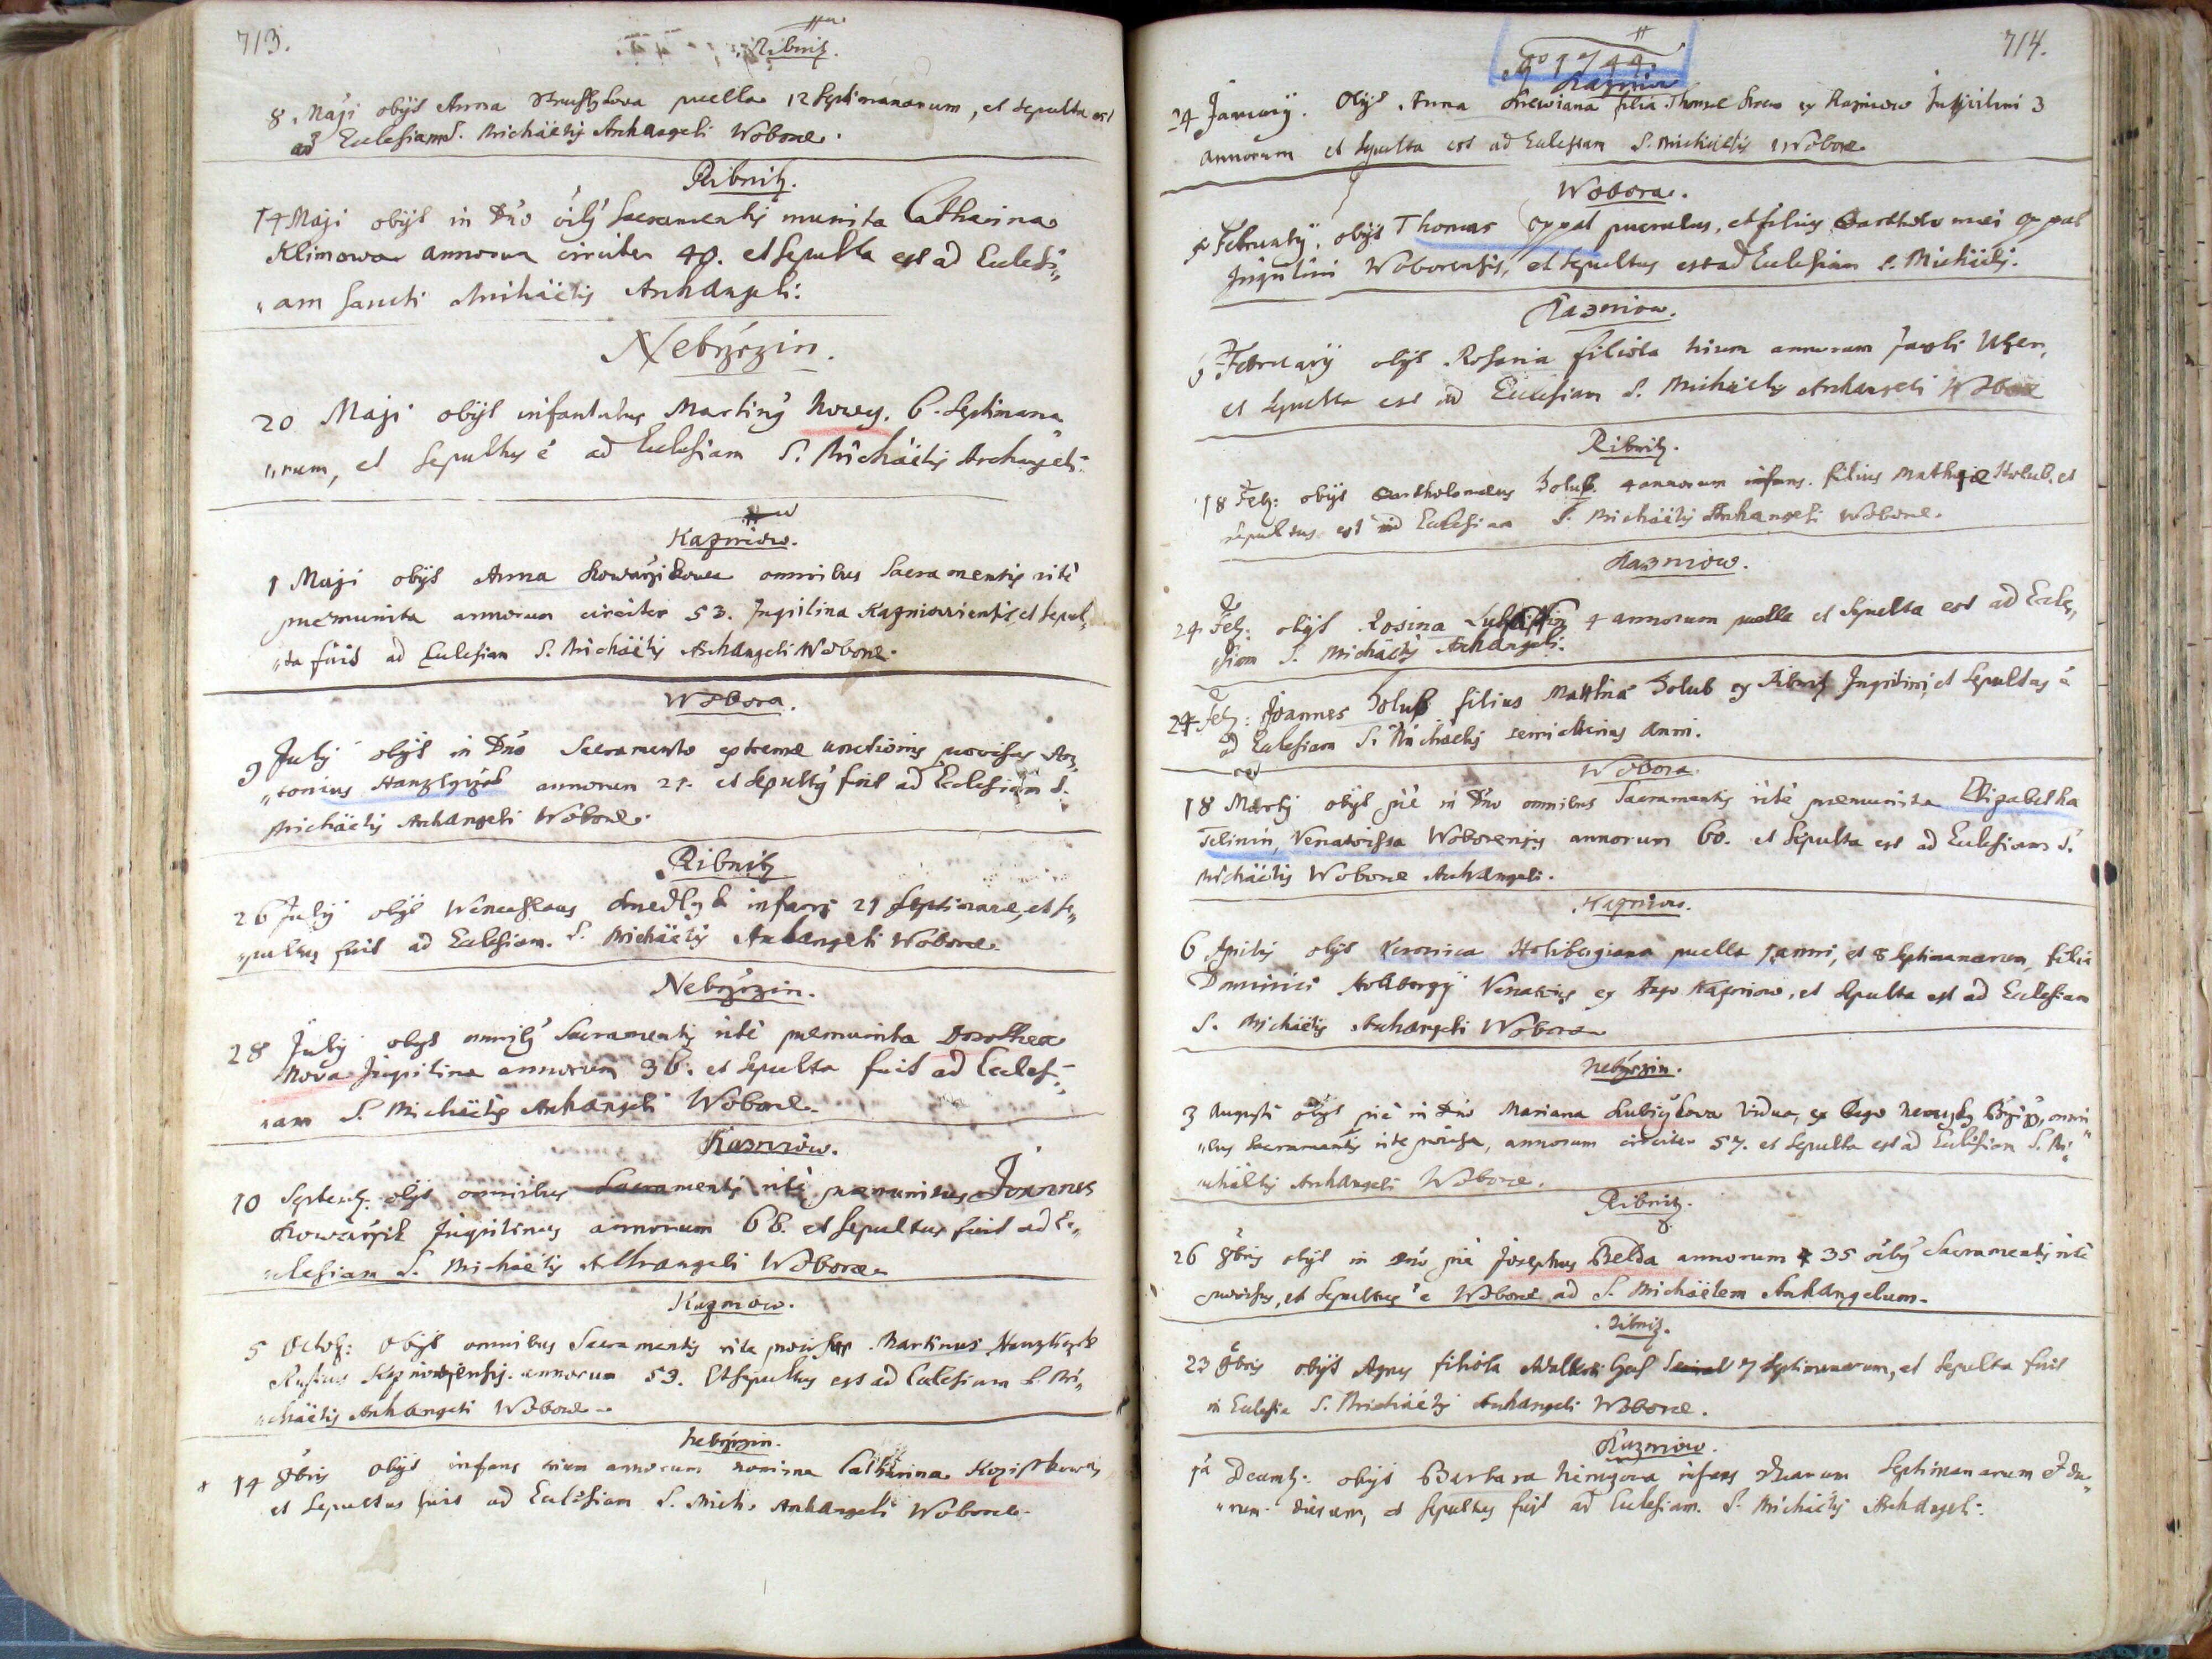 713.
Ribnitz.
8 Maji obijt Anna puella 12 Septimanarum, et sepulta est
ad Ecclesiam S. Michäelis Archangeli Woboræ.
Ribnitz.
14 Maji obijt in Dno Sacramentis munita Catharina
Klimowa annorum circiter 40. et Sepulta est ad Ecclesi„
„am Sancti Michäelis Archangeli.
Nebrzezin.
20 Maji obijt infantulus Martinus Nowy. 6. Septimana
„rum, et Sepultus e ad Ecclesiam S. Michäelis Archangeli.
Kazniow.
1 Maji obijt Anna Kowarzikowa omnibus Sacramentis rite
præmunita annorum circiter 53. Inquilina Kazniowiensis, et Sepul„
„ta fuit ad Ecclesiam S. Michäelis Archangeli Woboræ.
Wobora.
9 July obijt in Dno Sacramento extremæ unctionis provisus An„
„tonius annorum 21. et Sepultus fuit ad Ecclesiam S.
Michäelis Archangeli Woboræ.
Ribnitz
26 July obijt Wenceslaus infans 21 Septimanæ, et se„
„pultus fuit ad Ecclesiam S. Michäelis Archangeli Woboræ.
Nebrzezin.
28 July obijt Sacramentis rite præmunita Dorothea
Nova Inquilina annorum 36. et Sepulta fuit ad Ecclesi„
„am S. Michäelis Archangeli Woboræ.
Kazniow.
10 Septemb. obijt omnibus Sacramentis rite præmunitus Joannes
Kowarzik Inquilinus annorum 68. et Sepultus fuit ad Ec„
„clesiam S. Michäelis Archangeli Woboræ
Kazniow.
5 Octob: Obijt omnibus Sacramentis rite provisus Martinus
Rusticus Kazniowiensis. annorum 53. Et Sepultus est ad Ecclesiam S. Mi„
„chäelis Archangeli Woboræ.
Nebrzezin.
14 obijt infans annorum nomine Catharina
et Sepultus fuit ad Ecclesiam S. Mich. Archangeli Woboræ.
714.
Ao 1744.
Kazniow
24 January. Obijt Anna filia Thomæ ex Kazniow Inquilini 3
annorum et Sepulta est ad Ecclesiam S. Michäelis Woboræ
Wobora.
February. obijt Thomas Oppat puerulus, et filius Bartholomæi Oppat
Inquilini Woborensis, et Sepultus est ad Ecclesiam S. Michäelis.
Kazniow.
February obijt Rosaria filiola annorum
et Sepulta est ad Ecclesiam S. Michäelis Archangeli Woboræ
Ribnitz.
18 Feb: obijt Bartholomæus Holub. 4 annorum infans. filius Mathiæ Holub, et
sepultus est ad Ecclesiam S. Michäelis Archangeli Woboræ.
Kazniow.
24 Feb: obijt Rosina 4 annorum puella et Sepulta est ad Eccle„
siam S. Michäelis Archangeli.
24 Feb: Joannes Holub filius Holub ex Ribnitz Inquilini, et Sepultus e
ad Ecclesiam S. Michäelis anni.
Wobora.
18 Marty obijt pie in Dno omnibus Sacramentis rite præmunita Elizabetha
Woborensis annorum 60. et Sepulta est ad Ecclesiam S.
Michäelis Woboræ Archangeli.
Kazniow.
6 Aprilis obijt Veronica Holibergiana puella 1 anni, et 8 Septimanarum, filia
Dominici Venatoris ex Kazniow, et Sepulta est ad Ecclesiam
S. Michäelis Archangeli Woboræ
Nebrzezin.
3 Augusti obijt pie in Dno Mariana Vidua, ex omni„
„bus Sacramentis rite provisa, annorum circiter 57. et Sepulta est ad Ecclesiam S. Mi„
„chäelis Archangeli Woboræ.
Ribnitz.
26 8bris obijt in Dno pie Josephus Belda annorum 35 Sacramentis rite
provisus, et Sepultus e Woboræ ad S. Michäelem Archangelum.
Ribnitz.
23 obijt Agnes filiola 7 Septimanarum, et Sepulta fuit
in Ecclesia S. Michäelis Archangeli Woboræ.
Kazniow.
Decemb: obijt Barbara infans Septimanarum et
dierum, et Sepultus fuit ad Ecclesiam S. Michäelis Archangeli.